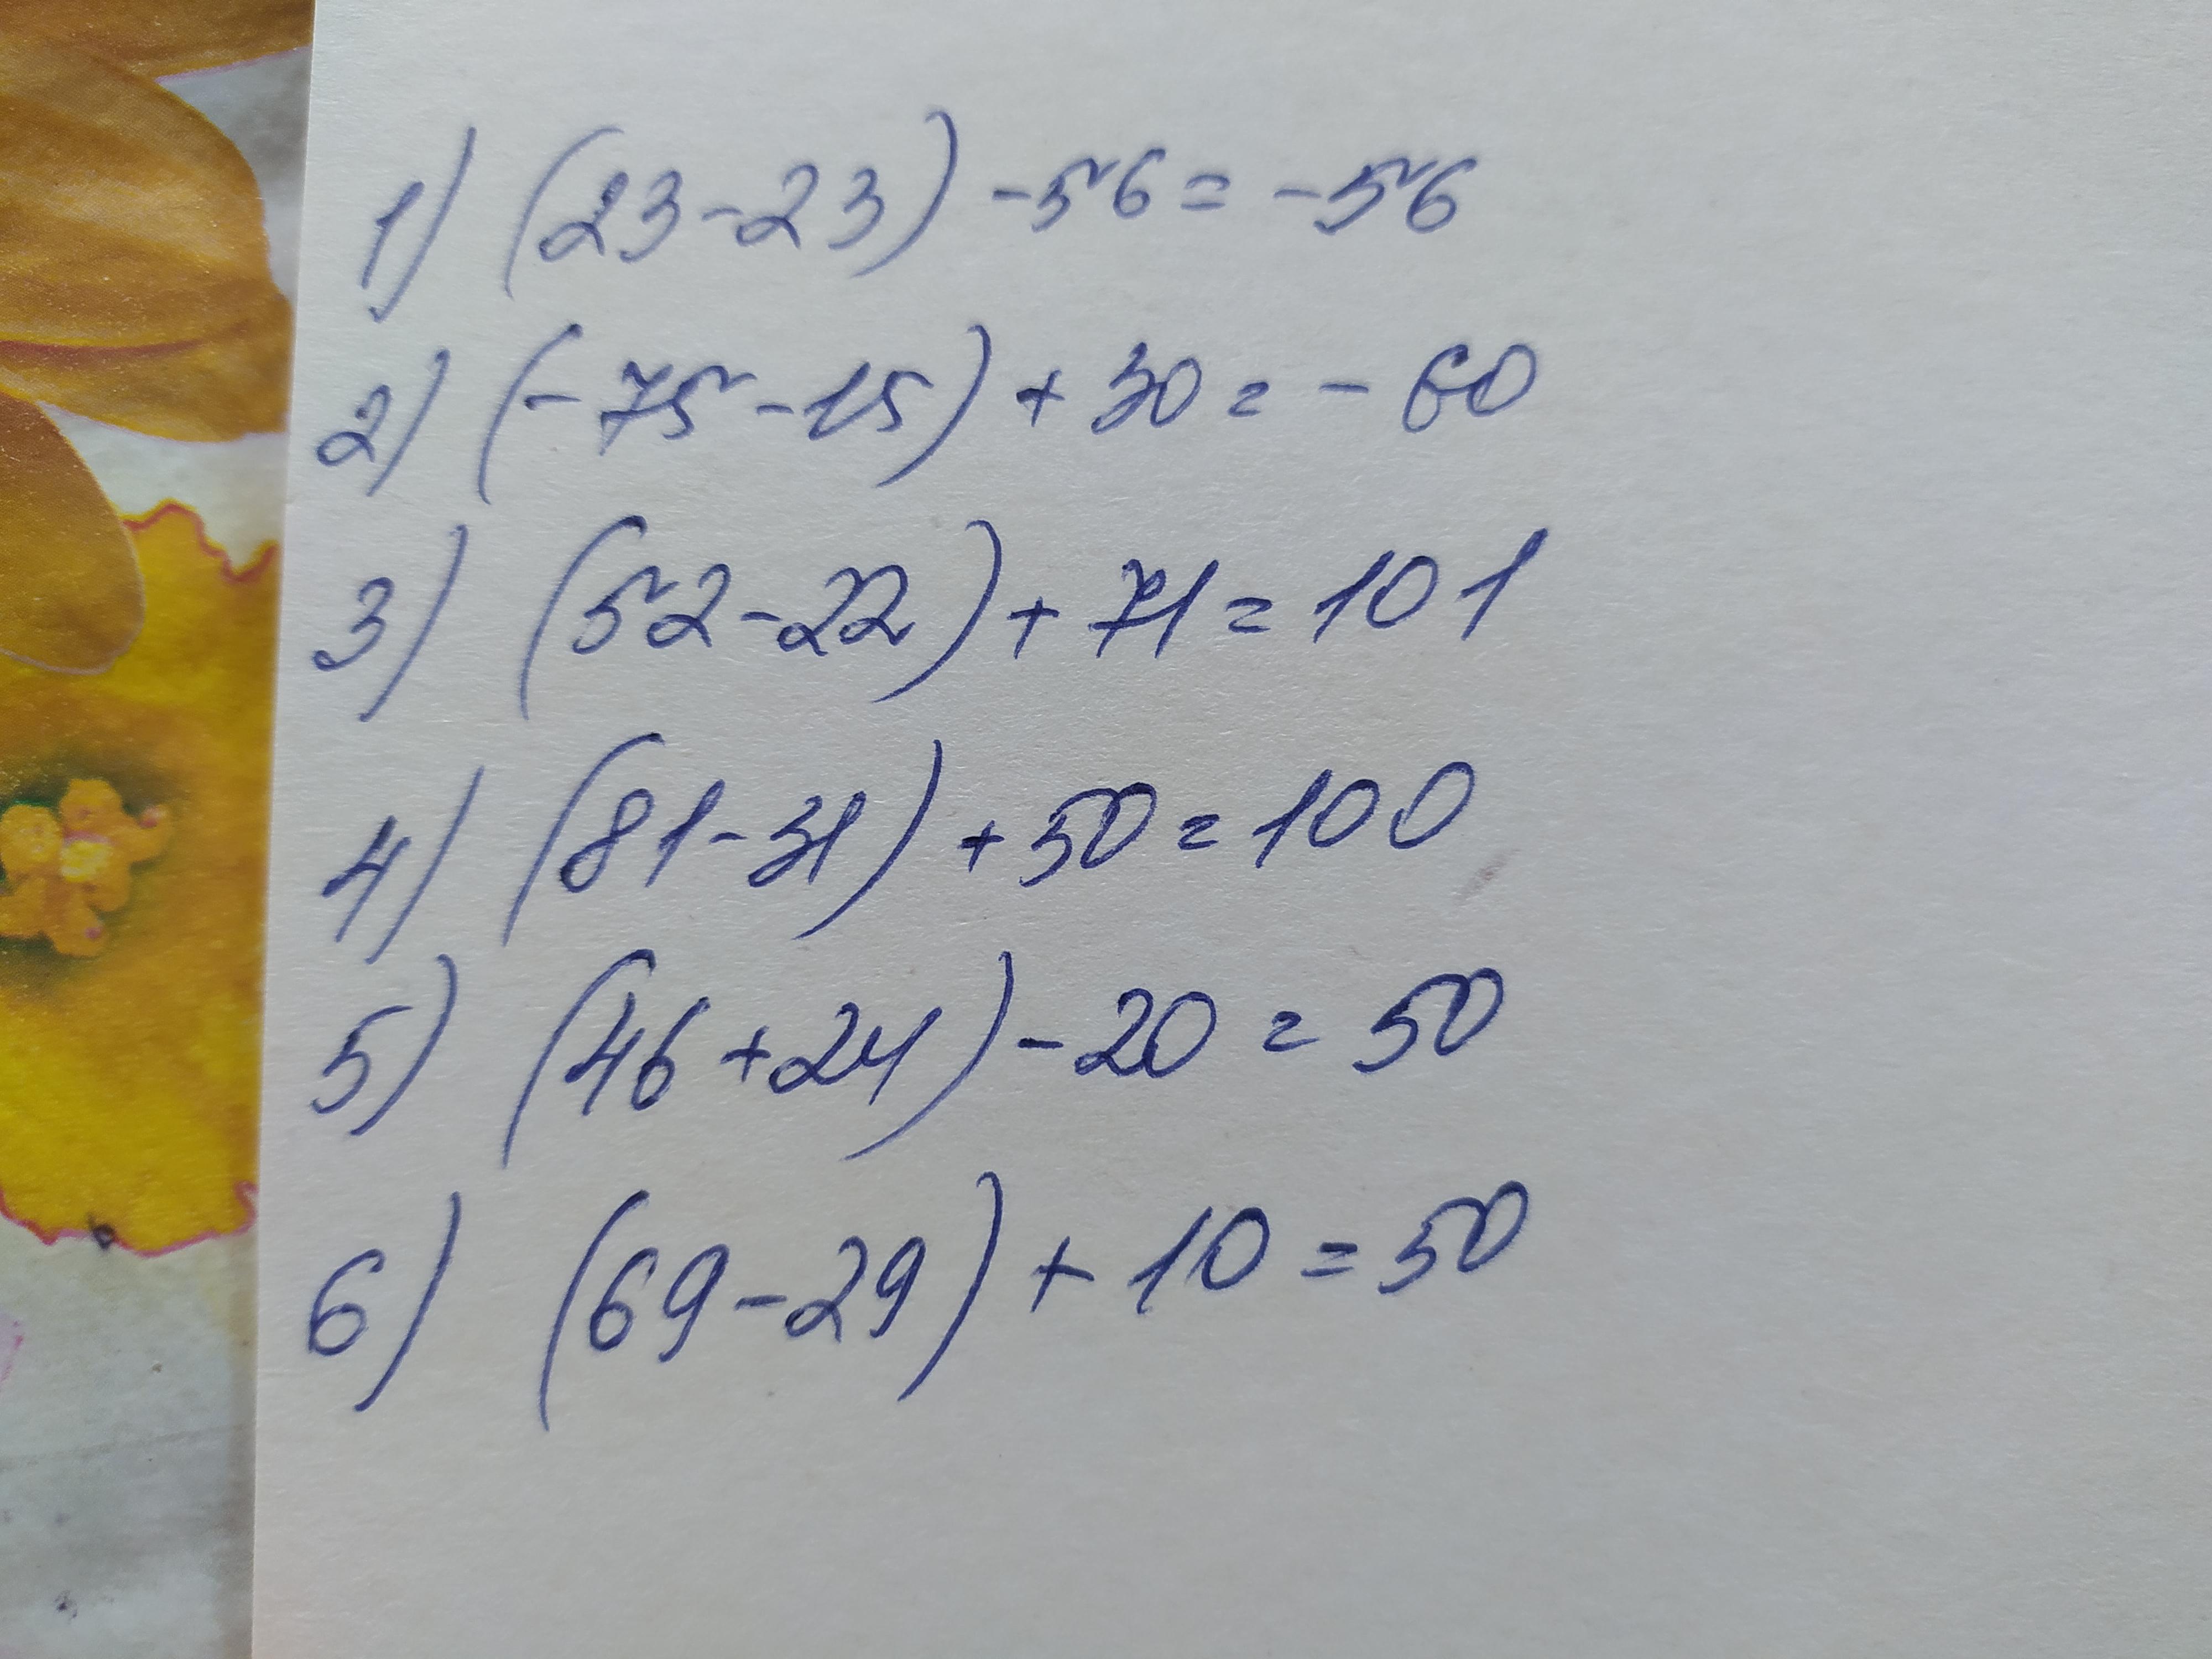 1) (23-23)-56=-56
2) (-75-15)+30=-60
3) (52-22)+71=101
4) (81-31)+50=100
5) (46+24)-20=50
6) (69-29)+10=50